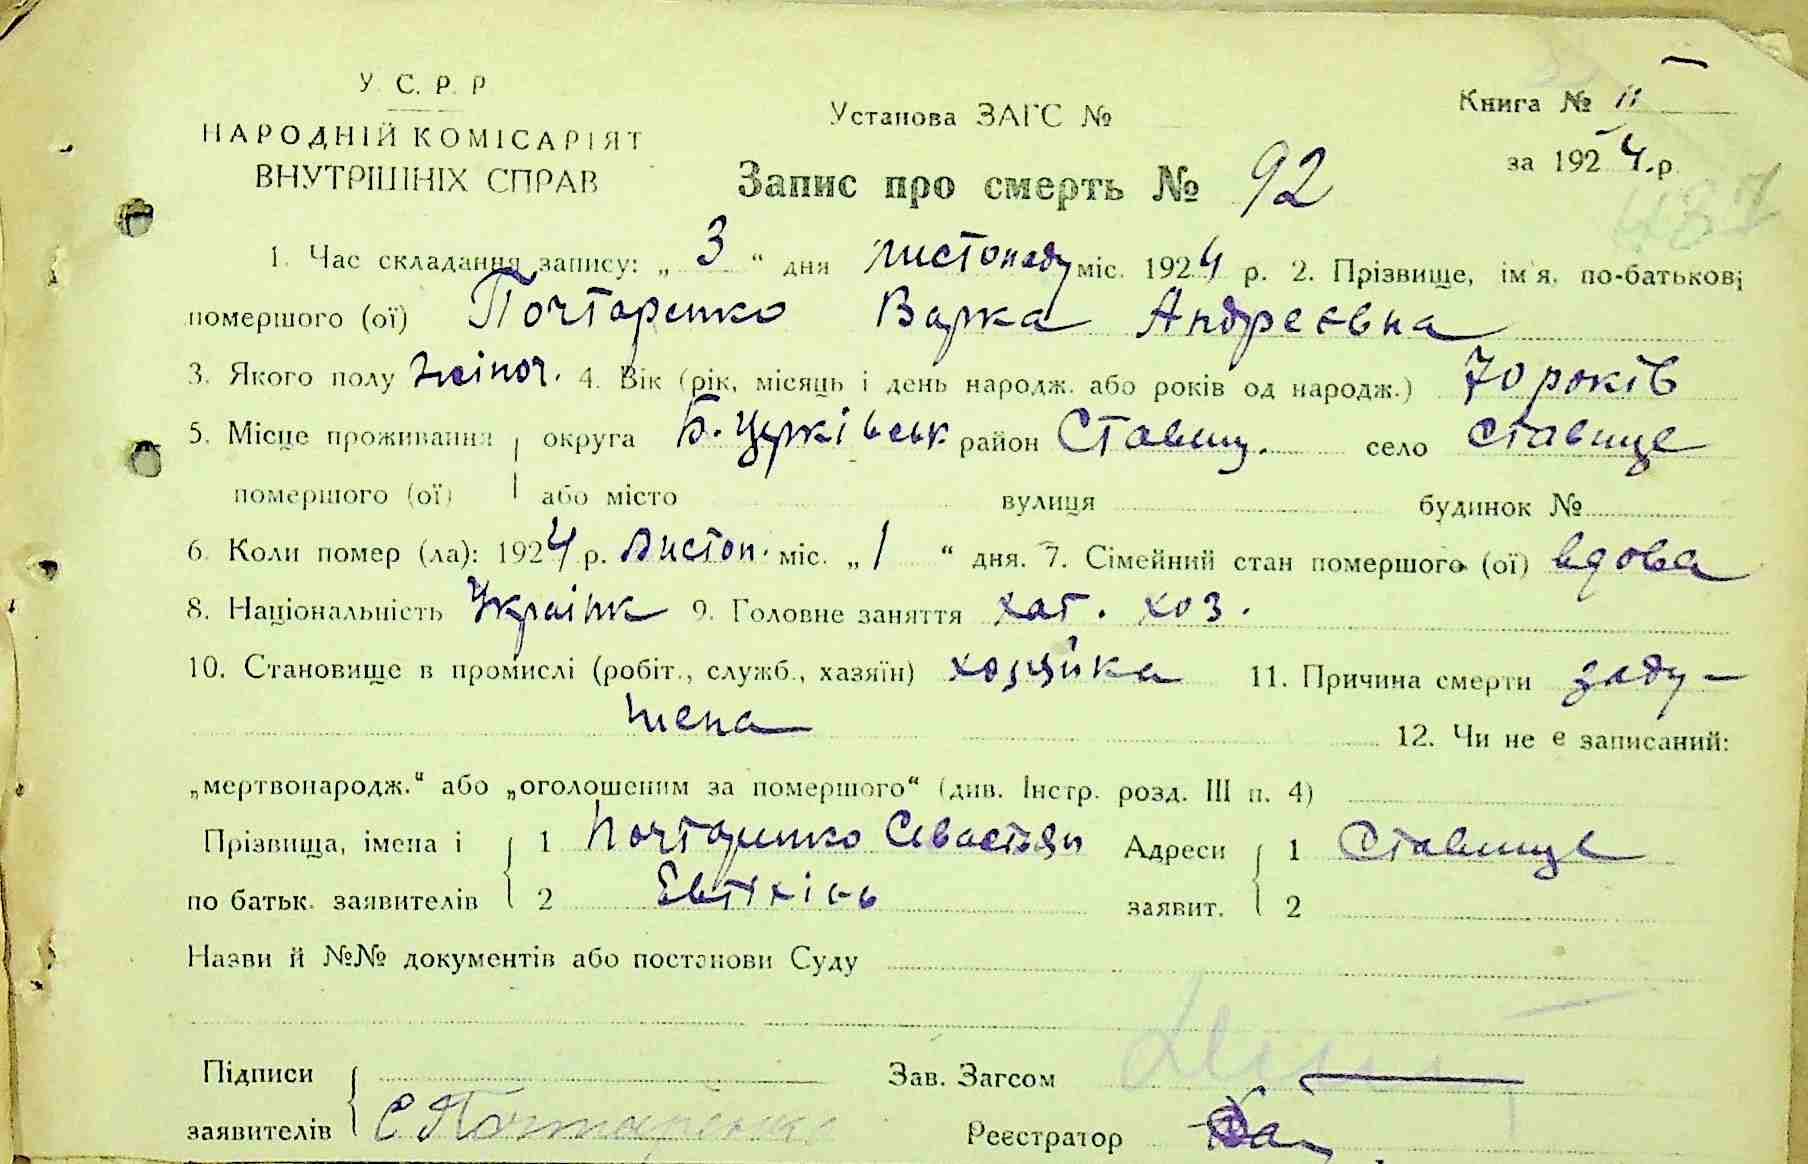 У. С. Р. Р
НАРОДНІЙ КОМІСАРІЯТ
ВНУТРІШНІХ СПРАВ
Установа ЗАГС №
Книга № II
за 1924 р.
Запис про смерть № 92
1. Час складання запису: „ 3 “ дня листопаду міс. 1924 р. 2. Прізвище, ім'я, по-батькові
помершого (ої) Почтаренко Варка Андреєвна
3. Якого полу жіноч. 4. Вік (рік, місяць і день народж. або років од народж.) 70 років
5. Місце проживання округа Б. Церківськ район Ставищ. село Ставище
помершого (ої) або місто вулиця будинок №
6. Коли помер (ла): 1924 р. Листоп. міс. „ 1 “ дня. 7. Сімейний стан помершого (ої) вдова
8. Національність Українк 9. Головне заняття хат. хоз.
10. Становище в промислі (робіт., служб., хазяїн) хозяйка 11. Причина смерти заду-
шена 12. Чи не є записаний:
„мертвонародж.“ або „оголошеним за помершого“ (див. Інстр. розд. III п. 4)
Прізвища, імена і 1 Почтаренко Севастьян Адреси 1 Ставище
по батьк. заявителів 2 Евтіхієв заявит. 2
Назви й №№ документів або постанови Суду
Підписи Зав. Загсом
заявителів С Почтаренко Реєстратор